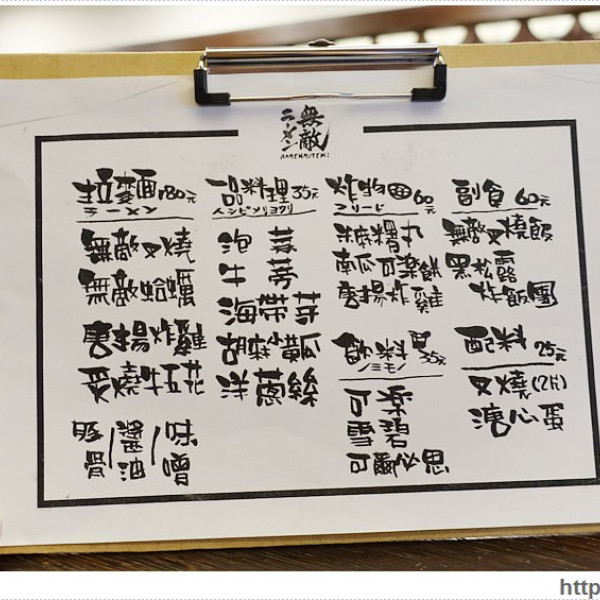 無敵
ラーメン
RAMENMUTEKI
拉麵 180元
ラーメン
無敵叉燒
無敵蛤蠣
唐揚炸雞
炙燒牛五花
豚骨/醬油/味噌
一品料理 35元
イシピンリヨウリ
泡菜
牛蒡
海帶芽
胡麻小黃瓜
洋蔥絲
炸物 60元
フリード
南瓜可樂餅
唐揚炸雞
飲料 35元
ノミモノ
可樂
雪碧
可爾必思
副食 60元
無敵叉燒飯
黑松露
炸飯團
配料 25元
叉燒(2片)
溏心蛋
http